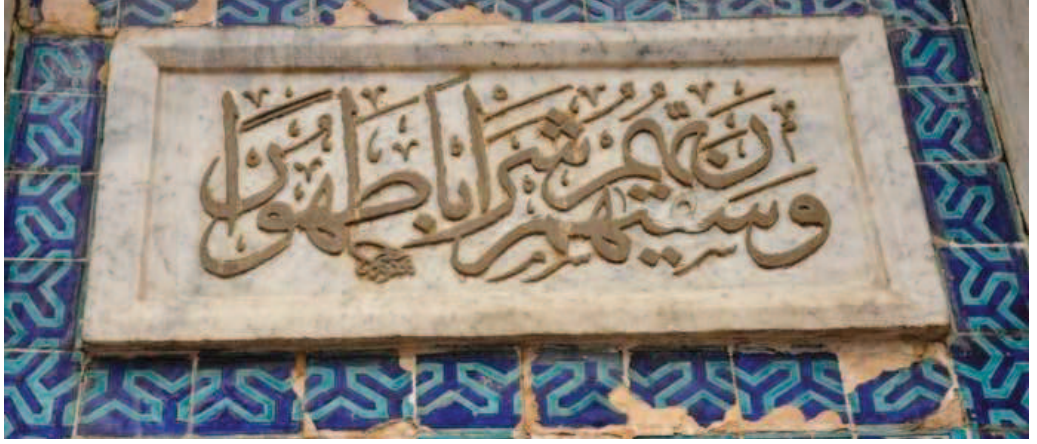 وَسَقٰيهُمْ رَبُّهُمْ شَرَابًا طَهُورًا